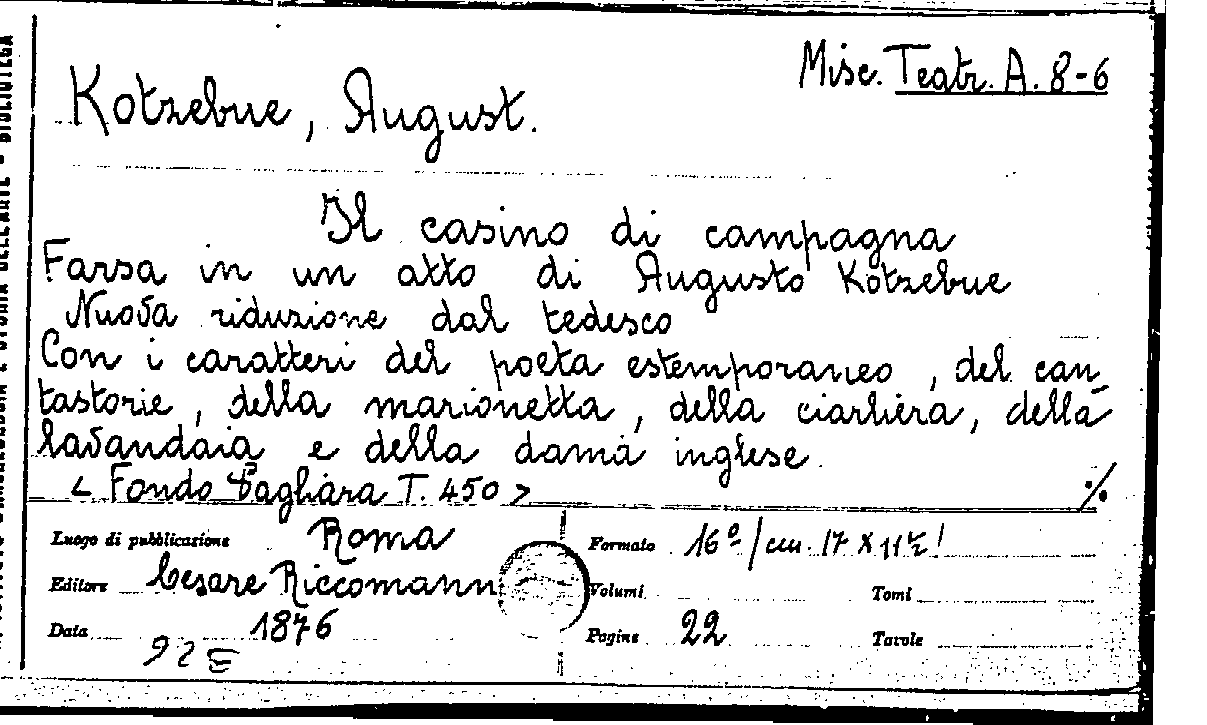 Misc. Teatr. A. 8-6
Kotzebue, August.
Il casino di campagna
Farsa in un atto di Augusto Kotzebue
Nuova riduzione dal tedesco
Con i caratteri del poeta estemporaneo, del can-
tastorie, della marionetta, della ciarliera, della
lavandaia e della dama inglese.
< Fondo Pagliara T. 450 >
./.
Luogo di pubblicazione Roma
Formato 16º/cm. 17 X 11½/
Editore Cesare Riccomann
Volumi
Tomi
Data 1876
Pagine 22
Tavole